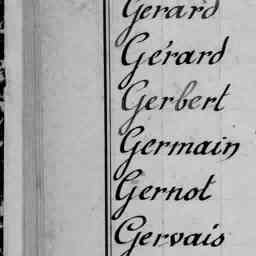 Gerard
Gérard
Gerbert
Germain
Gernot
Gervais